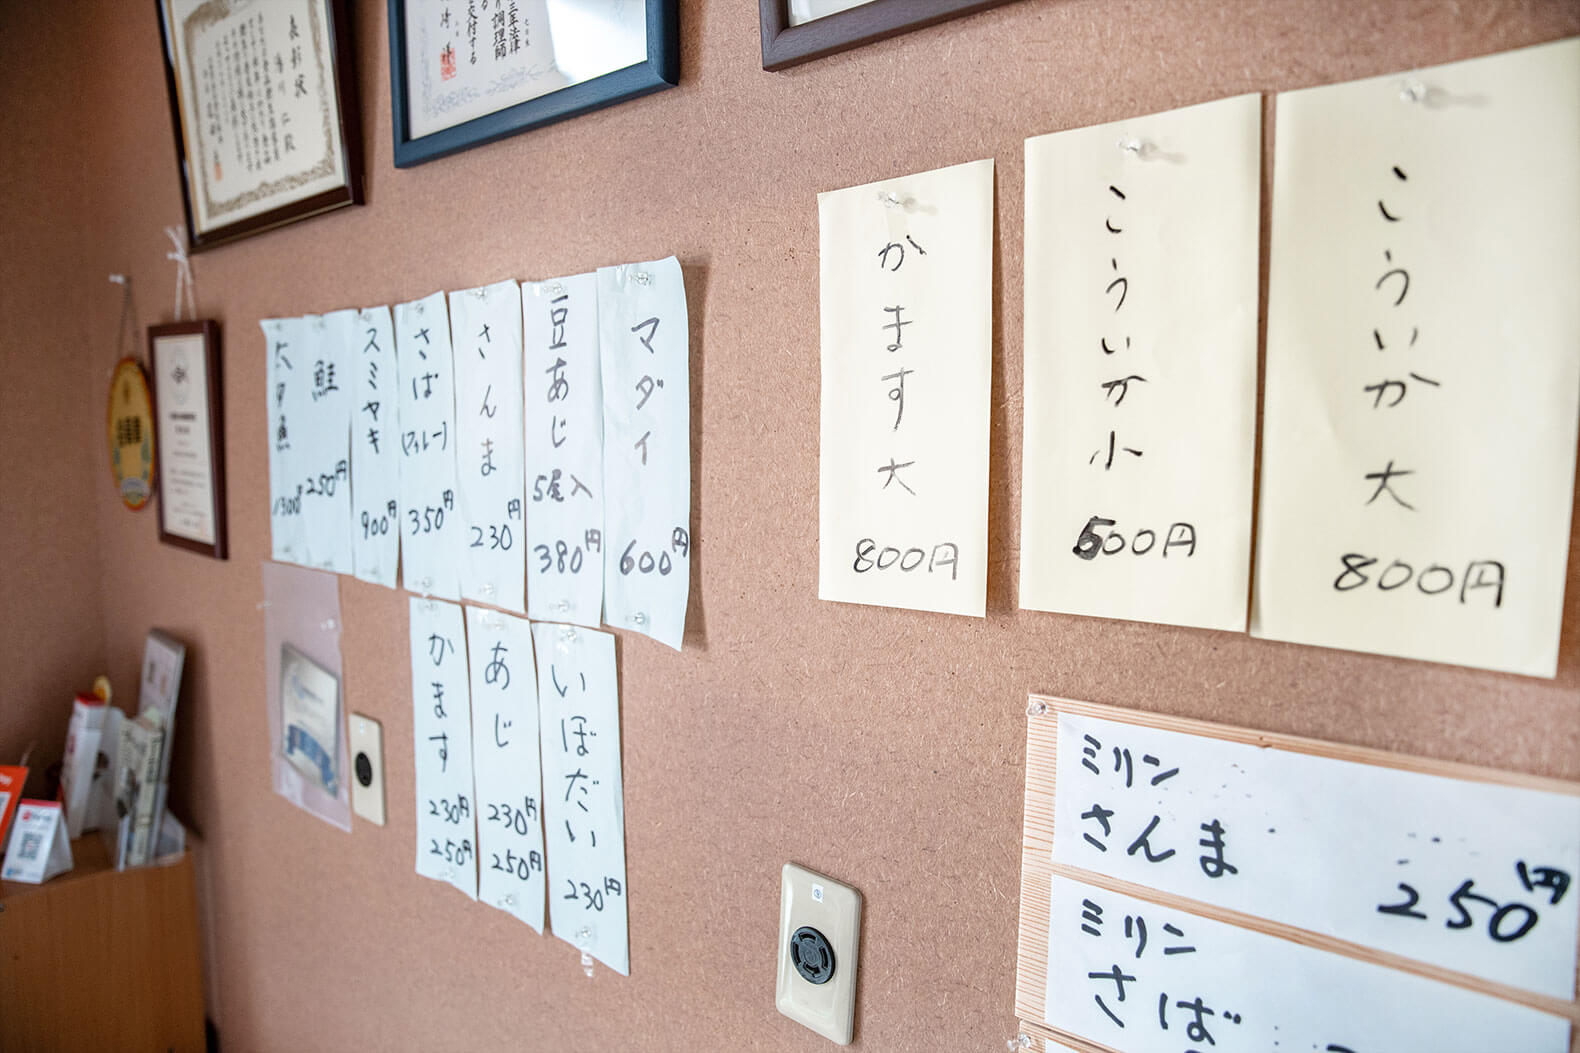 表彰状
三年法律
調理師
交付する
こういか大
800円
こういか小
500円
かます大
800円
マダイ
600円
豆あじ
5尾入
380円
さんま
230円
さば
(フィレー)
350円
スミヤキ
900円
鮭
250円
太刀魚
1300円
いぼだい
230円
あじ
230円
250円
かます
230円
250円
ミリン
さんま
250円
ミリン
さば